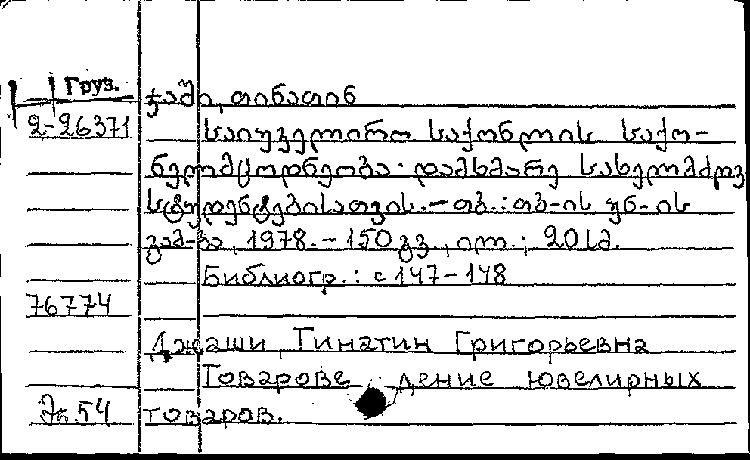 Груз.
ჯაში, თინათინ
2-26371
საიუველირო საქონლის საქო-
ნელმცოდნეობა. დამხმარე სახელმძღვ.
სტუდენტებისათვის. - თბ.: თბ-ის უნ-ის
გამ-ბა, 1978. - 150 გვ., ილ.; 20 სმ.
Библиогр.: с 147-148
76774
Джаши Тинатин Григорьевна
Товароведение ювелирных
54 товаров.